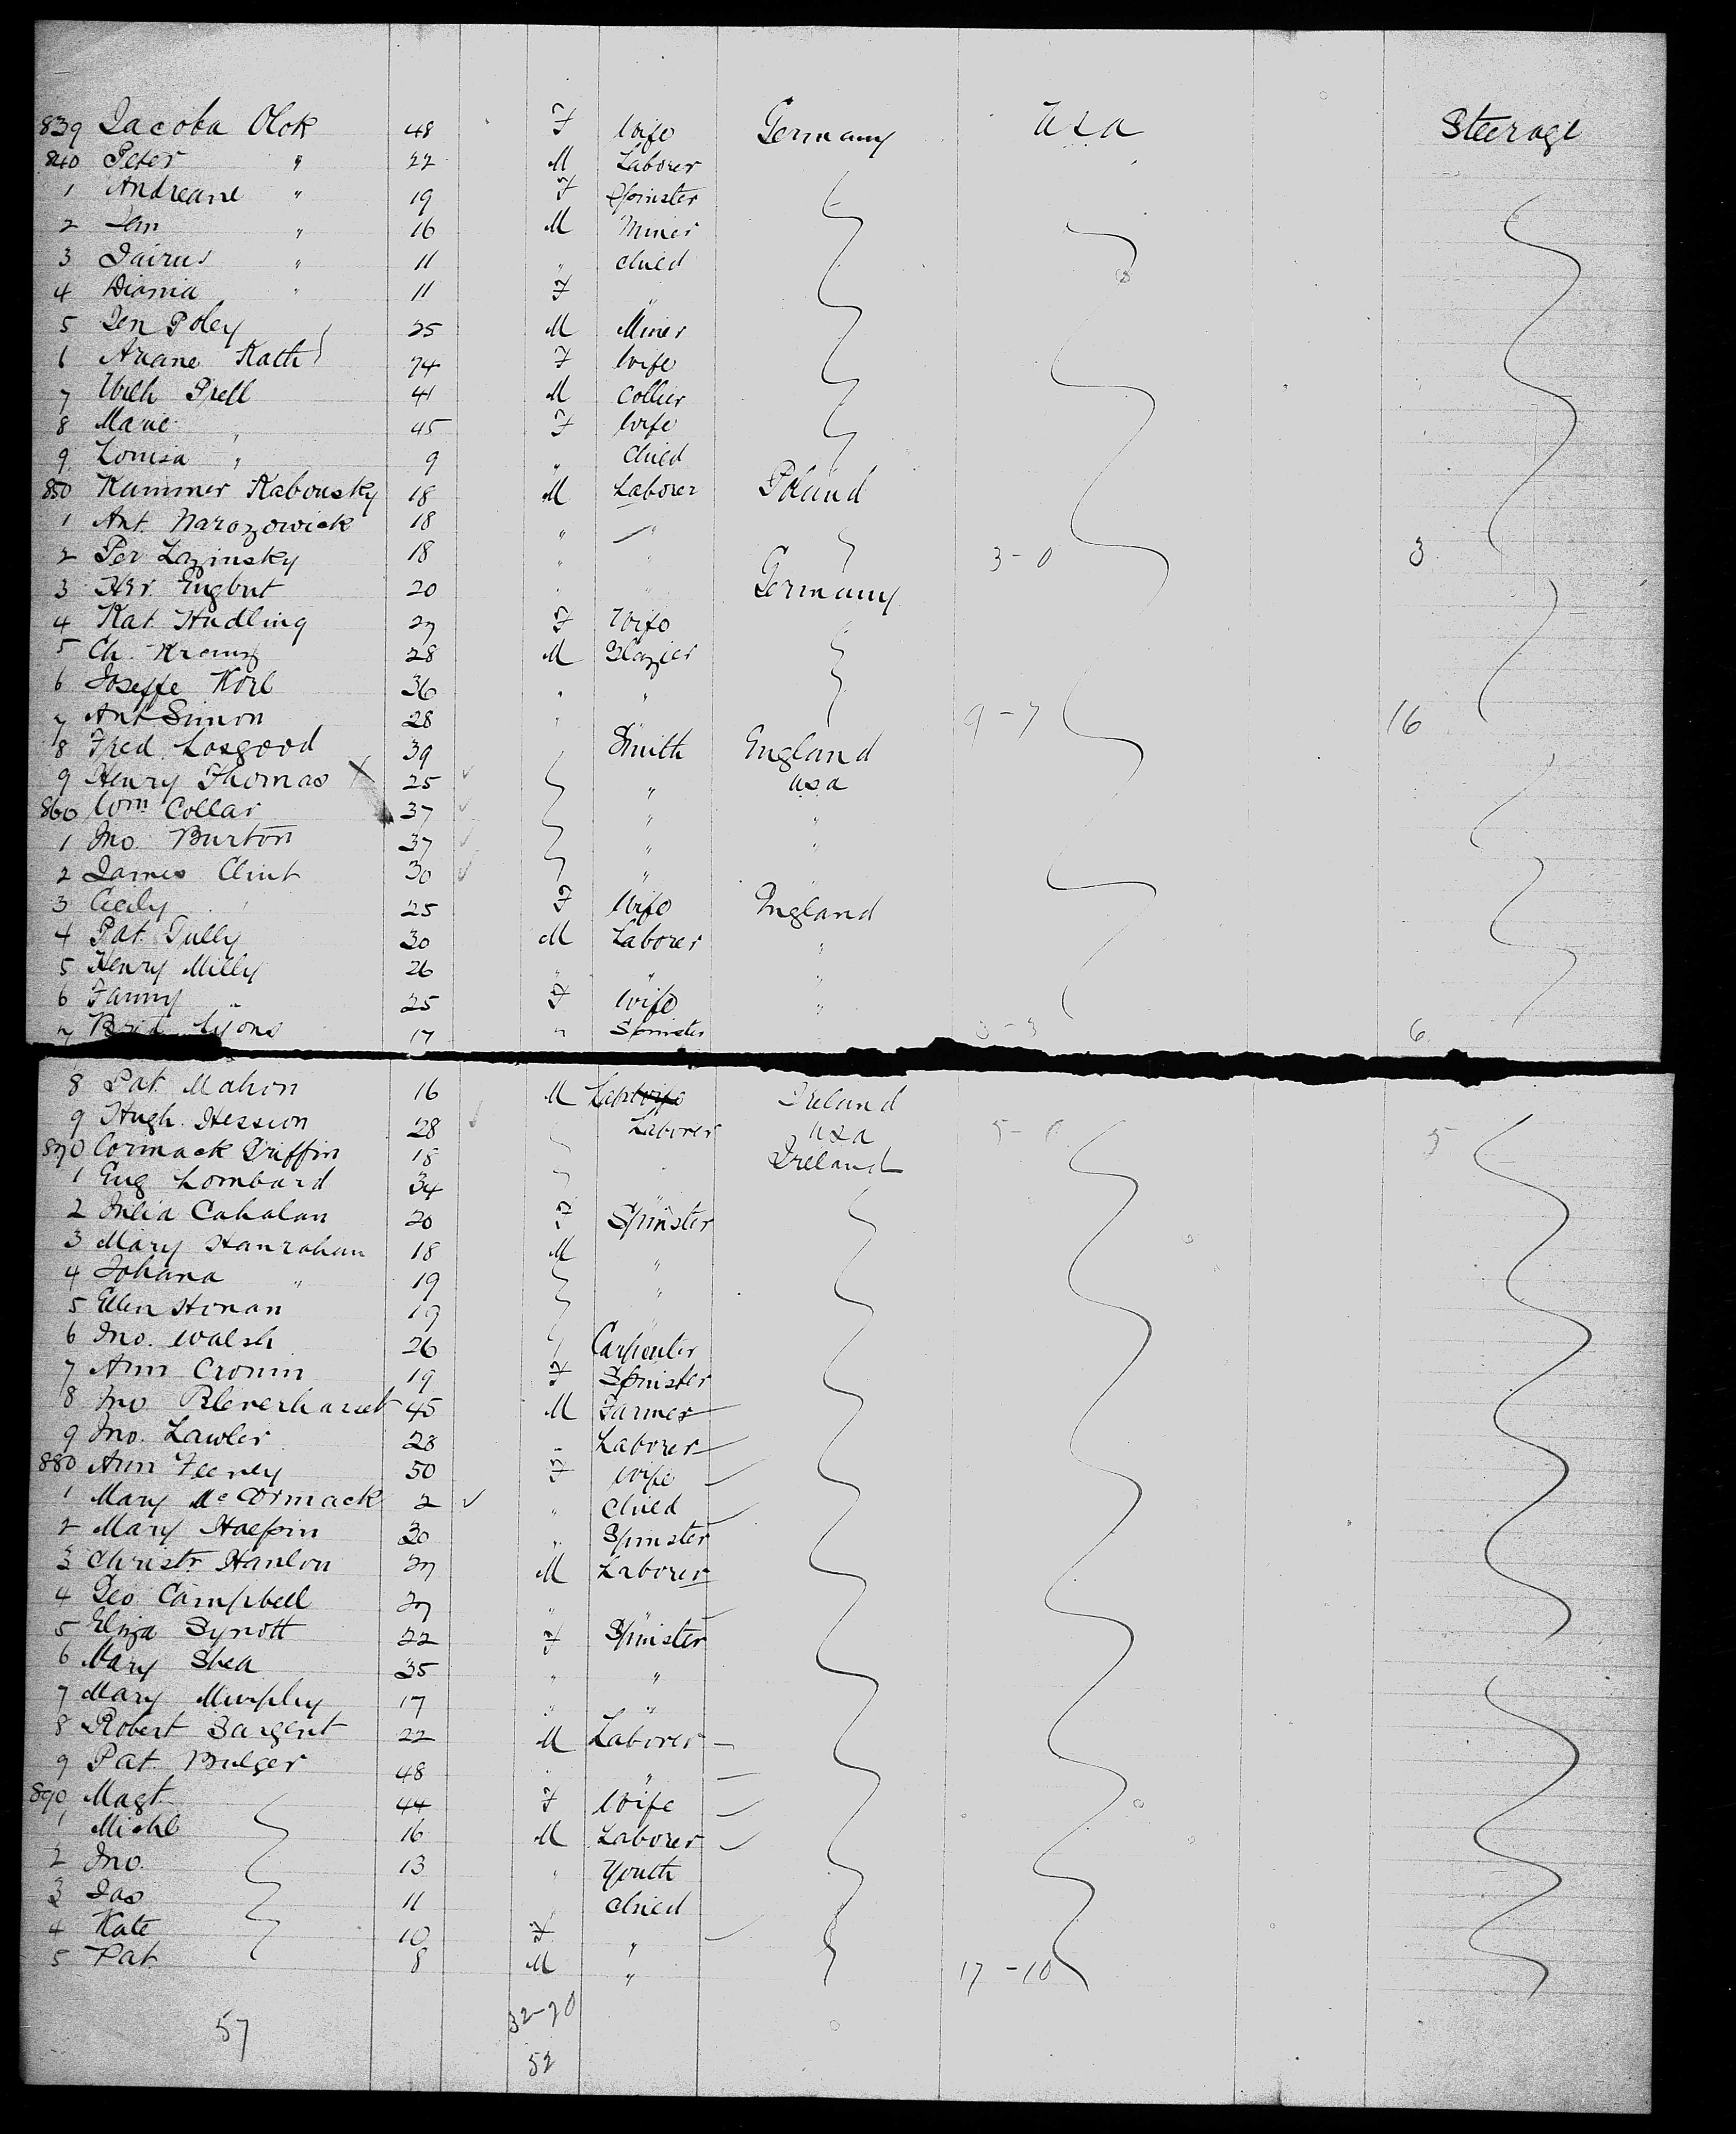 839 Jacoba Olok 48 F Wife Germany USA Steerage
840 Peter " 22 M Laborer
1 Andreane " 19 F Spinster
2 Jan " 16 M Miner
3 Jairus " 11 " Child
4 Diania " 11 F "
5 Jen Poley 25 M Miner
6 Ariane Kath 74 F Wife
7 Wilh Prell 41 M Collier
8 Marie " 45 F Wife
9 Louisa " 9 " Child
850 Kummer Kabousky 18 M Laborer Poland
1 Ant. Narozowick 18 " "
2 Per Lazinsky 18 " " 3-0 3
3 Hr. Engbut 20 " " Germany
4 Kat. Hudling 27 F Wife
5 Ch. Kranz 28 M Glazier
6 Joseffe Korl 36 " "
7 Ant Simon 28 " " 9-7 16
8 Fred. Losgood 39 Smith England
9 Henry Thomas X 25 ✓ " USA
860 Wm Collar 37 ✓ " "
1 Jno. Burton 37 ✓ " "
2 James Clint 30 ✓ " "
3 Cicily " 25 F Wife England
4 Pat. Tully 30 M Laborer "
5 Henry Milly 26 " " "
6 Fanny " 25 F Wife "
7 Brid. Lyons 17 " Spinster " 3-3 6
8 Pat. Mahon 16 M Lab Ireland
9 Hugh. Hession 28 ✓ Laborer USA 5-0 5
870 Cormack Griffin 18 " Ireland
1 Eug Lombard 34 "
2 Julia Cahalan 20 F Spinster
3 Mary Hanrahan 18 M "
4 Johana " 19 "
5 Ellen Honan 19 "
6 Jno. Walsh 26 Carpenter
7 Ann Cronin 19 F Spinster
8 Jno. Blenerhasset 45 M Farmer
9 Jno. Lawler 28 " Laborer
880 Ann Feeney 50 F Wife
1 Mary McCormack 2 ✓ " Child
2 Mary Halpin 30 " Spinster
3 Christr. Hanlon 27 M Laborer
4 Geo Campbell 27 " "
5 Eliza Synott 22 F Spinster
6 Mary Shea 35 " "
7 Mary Murphy 17 " "
8 Robert Sargent 22 M Laborer
9 Pat. Bulger 48 " "
890 Magt. 44 F Wife
1 Michl 16 M Laborer
2 Jno. 13 " Youth
3 Jas 11 " Child
4 Kate 10 F "
5 Pat. 8 M " 17-10
57 32-20
52